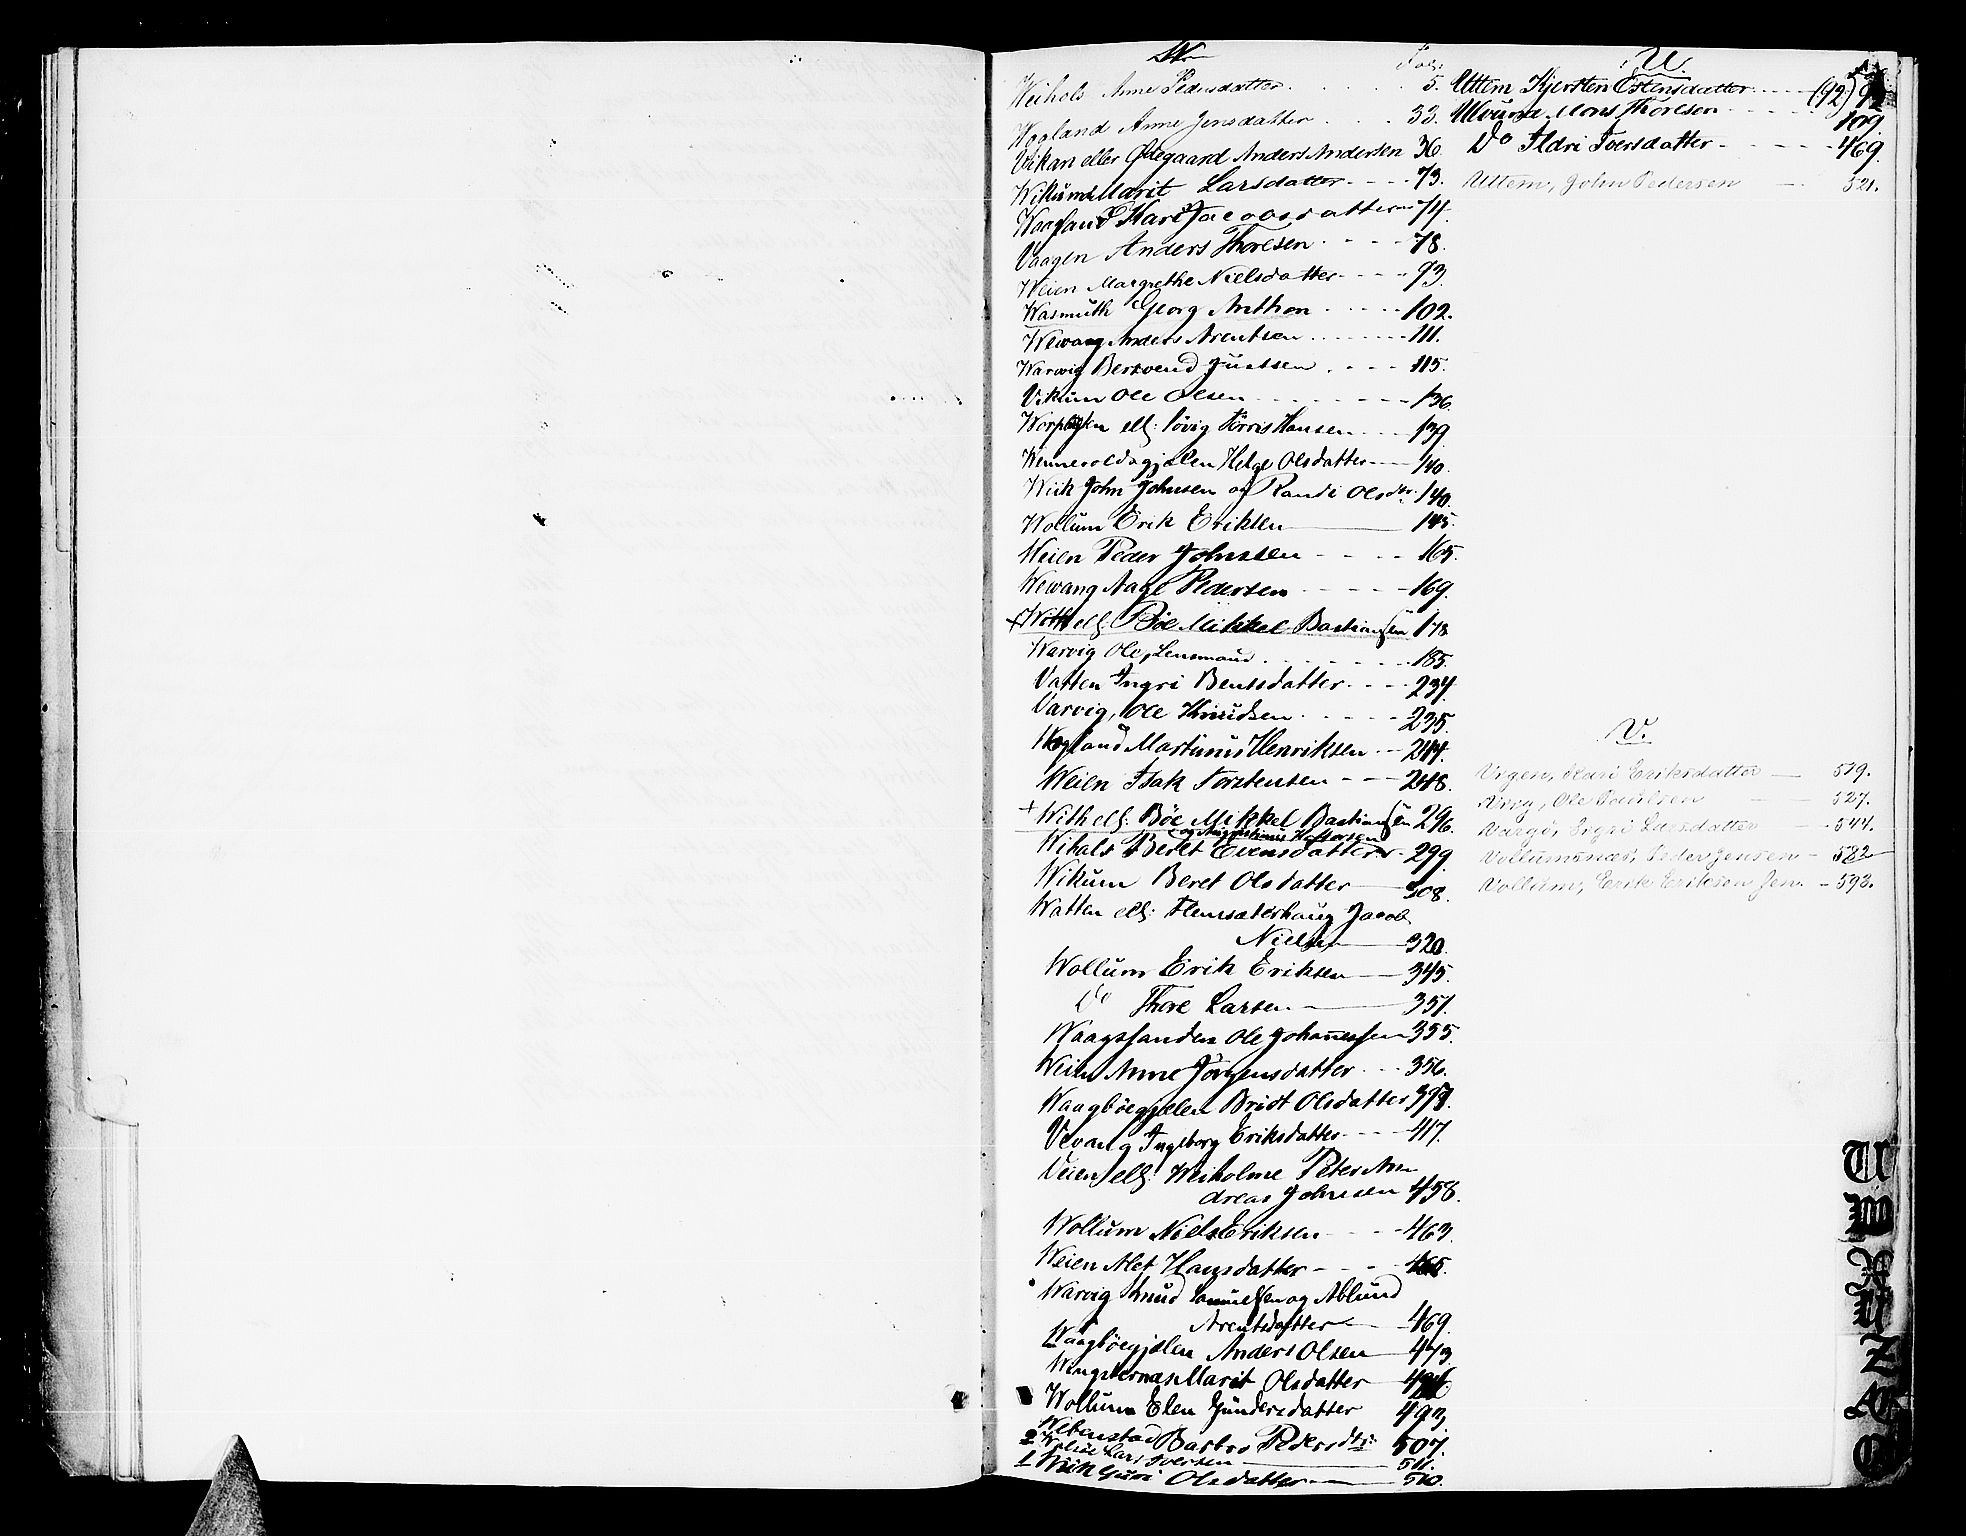 W.
Fol.
Weihols Anne Pedersdatter. 5.
Wogland Anne Jensdatter 33.
Vikan eller Ødegaard Anders Andersen 36
Wikum Marit Larsdatter 73.
Waagland Kari Jacobsdatter 74.
Vaagen Anders Thoresen 78.
Weien Margrethe Nielsdatter 93.
Wasmuth Georg Anthon 102.
Wewang Anders Arentsen 111.
Warvig Bersvend Justsen 115.
Vikum Ole Olsen 136
ell: Løvig Tørris Hansen 139
Helge Olsdatter 140.
Wiik John Johnsen og Randi Olsdtr. 140.
Wollum Erik Eriksen 145.
Weien Peder Johnsen 165.
Wewang Aage Pedersen 169.
With ell: Böe Mikkel Bastiansen 178
Warvig Ole, Lensmand 185.
Vatten Ingri Bentsdatter 234.
Varvig, Ole Knudsen 235.
Wogland Martinus Henriksen 244.
Weien Isak Torstensen 248.
+ With ell: Böe Mikkel Bastiansen 296.
og Augustinus
Wihals Beret Evensdatter 299.
Wikum Beret Olsdatter 308.
Watten ell: Hemsæterhaug Jacob
Nielsen 320.
Wollum Erik Eriksen 345.
Do Thore Larsen 351.
Waagssanden Ole Johannessen 355.
Weien Anne Jörgensdatter 356.
Waagböegjelen Bridt Olsdatter
Vevang Ingeborg Eriksdatter 417.
Veien ell: Weiholme Peter An-
dreas Johnsen 458.
Wollum Niels Eriksen 463.
Weien Alet Hansdatter 465.
Warvig Knud Samuelsen og Ablund
Arentsdatter 469.
Waagböegjelen Anders Olsen 473
Marit Olsdatter
Wollum Elen Gundersdatter 493,
Webenstad Barbro Pedersdtr: 507.
2 Lars Iversen 511.
1 Wiik Guri Olsdatter 510.
U.
Uttem Kjersten Estensdatter (92)
Ulvund Mons Thoresen 109.
Do Ildri Iversdatter 469.
Uttem, John Pedersen 521.
V.
Vegen, Kari Eriksdatter 519.
Ole Paulsen 527.
Vaagö, Ingri Larsdatter 544.
Vollumsnæs, Peder Jensen 582
Vollum, Erik Eriksen Jun. 593.
U
W
X
Y
Z
Æ
Ø